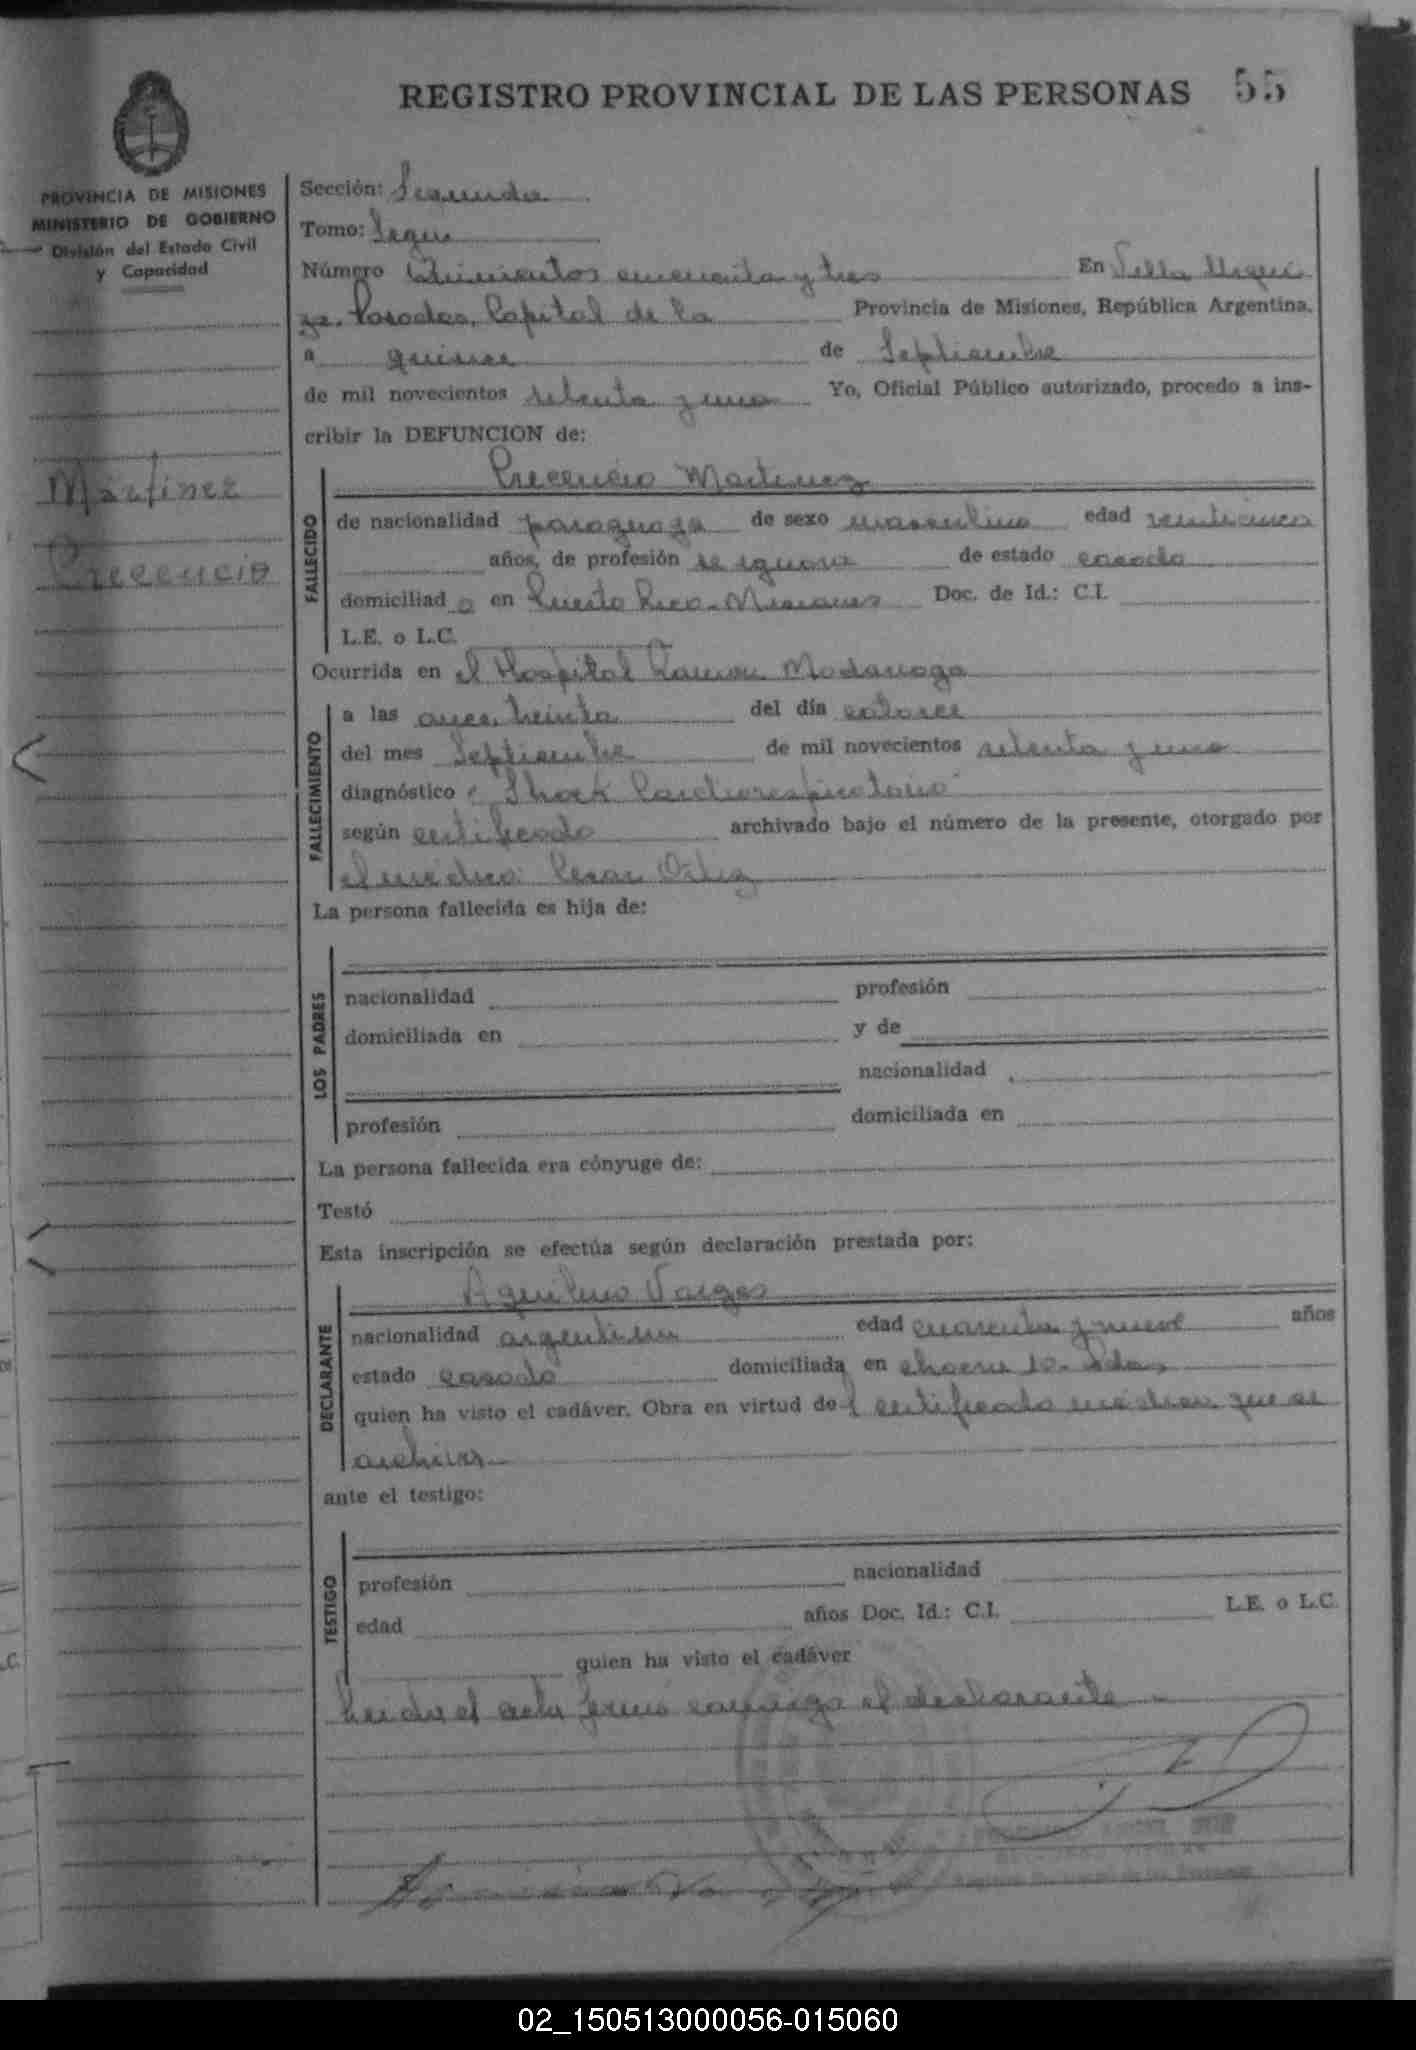 REGISTRO PROVINCIAL DE LAS PERSONAS 55
PROVINCIA DE MISIONES
MINISTERIO DE GOBIERNO
División del Estado Civil
y Capacidad
Martinez
Crecencio
Sección: Segunda
Tomo: Segun
Número Quinientos cincuenta y tres En Villa Urqui
za. Posadas, Capital de la Provincia de Misiones, República Argentina,
a quince de Septiembre
de mil novecientos setenta y uno Yo, Oficial Público autorizado, procedo a ins-
cribir la DEFUNCION de:
Crecencio Martinez
FALLECIDO
de nacionalidad paraguaya de sexo masculino edad veinticinco
años, de profesión se ignora de estado casado
domiciliad o en Puerto Rico - Misiones Doc. de Id.: C.I.
L.E. o L.C.
Ocurrida en el Hospital Ramon Madariaga
FALLECIMIENTO
a las once, treinta del día catorce
del mes Septiembre de mil novecientos setenta y uno
diagnóstico : Shock Cardiorespiratorio
según certificado archivado bajo el número de la presente, otorgado por
el médico: Cesar Ortiz
La persona fallecida es hija de:
LOS PADRES
nacionalidad profesión
domiciliada en y de
nacionalidad
profesión domiciliada en
La persona fallecida era cónyuge de:
Testó
Esta inscripción se efectúa según declaración prestada por:
Aquilino Vargas
DECLARANTE
nacionalidad argentina edad cuarenta y nueve años
estado casado domiciliada en chacra
quien ha visto el cadáver. Obra en virtud del certificado médico que se
archiva
ante el testigo:
TESTIGO
profesión nacionalidad
edad años Doc. Id.: C.I. L.E. o L.C.
quien ha visto el cadáver
Leida el acta firmó conmigo el declarante -
02_150513000056-015060